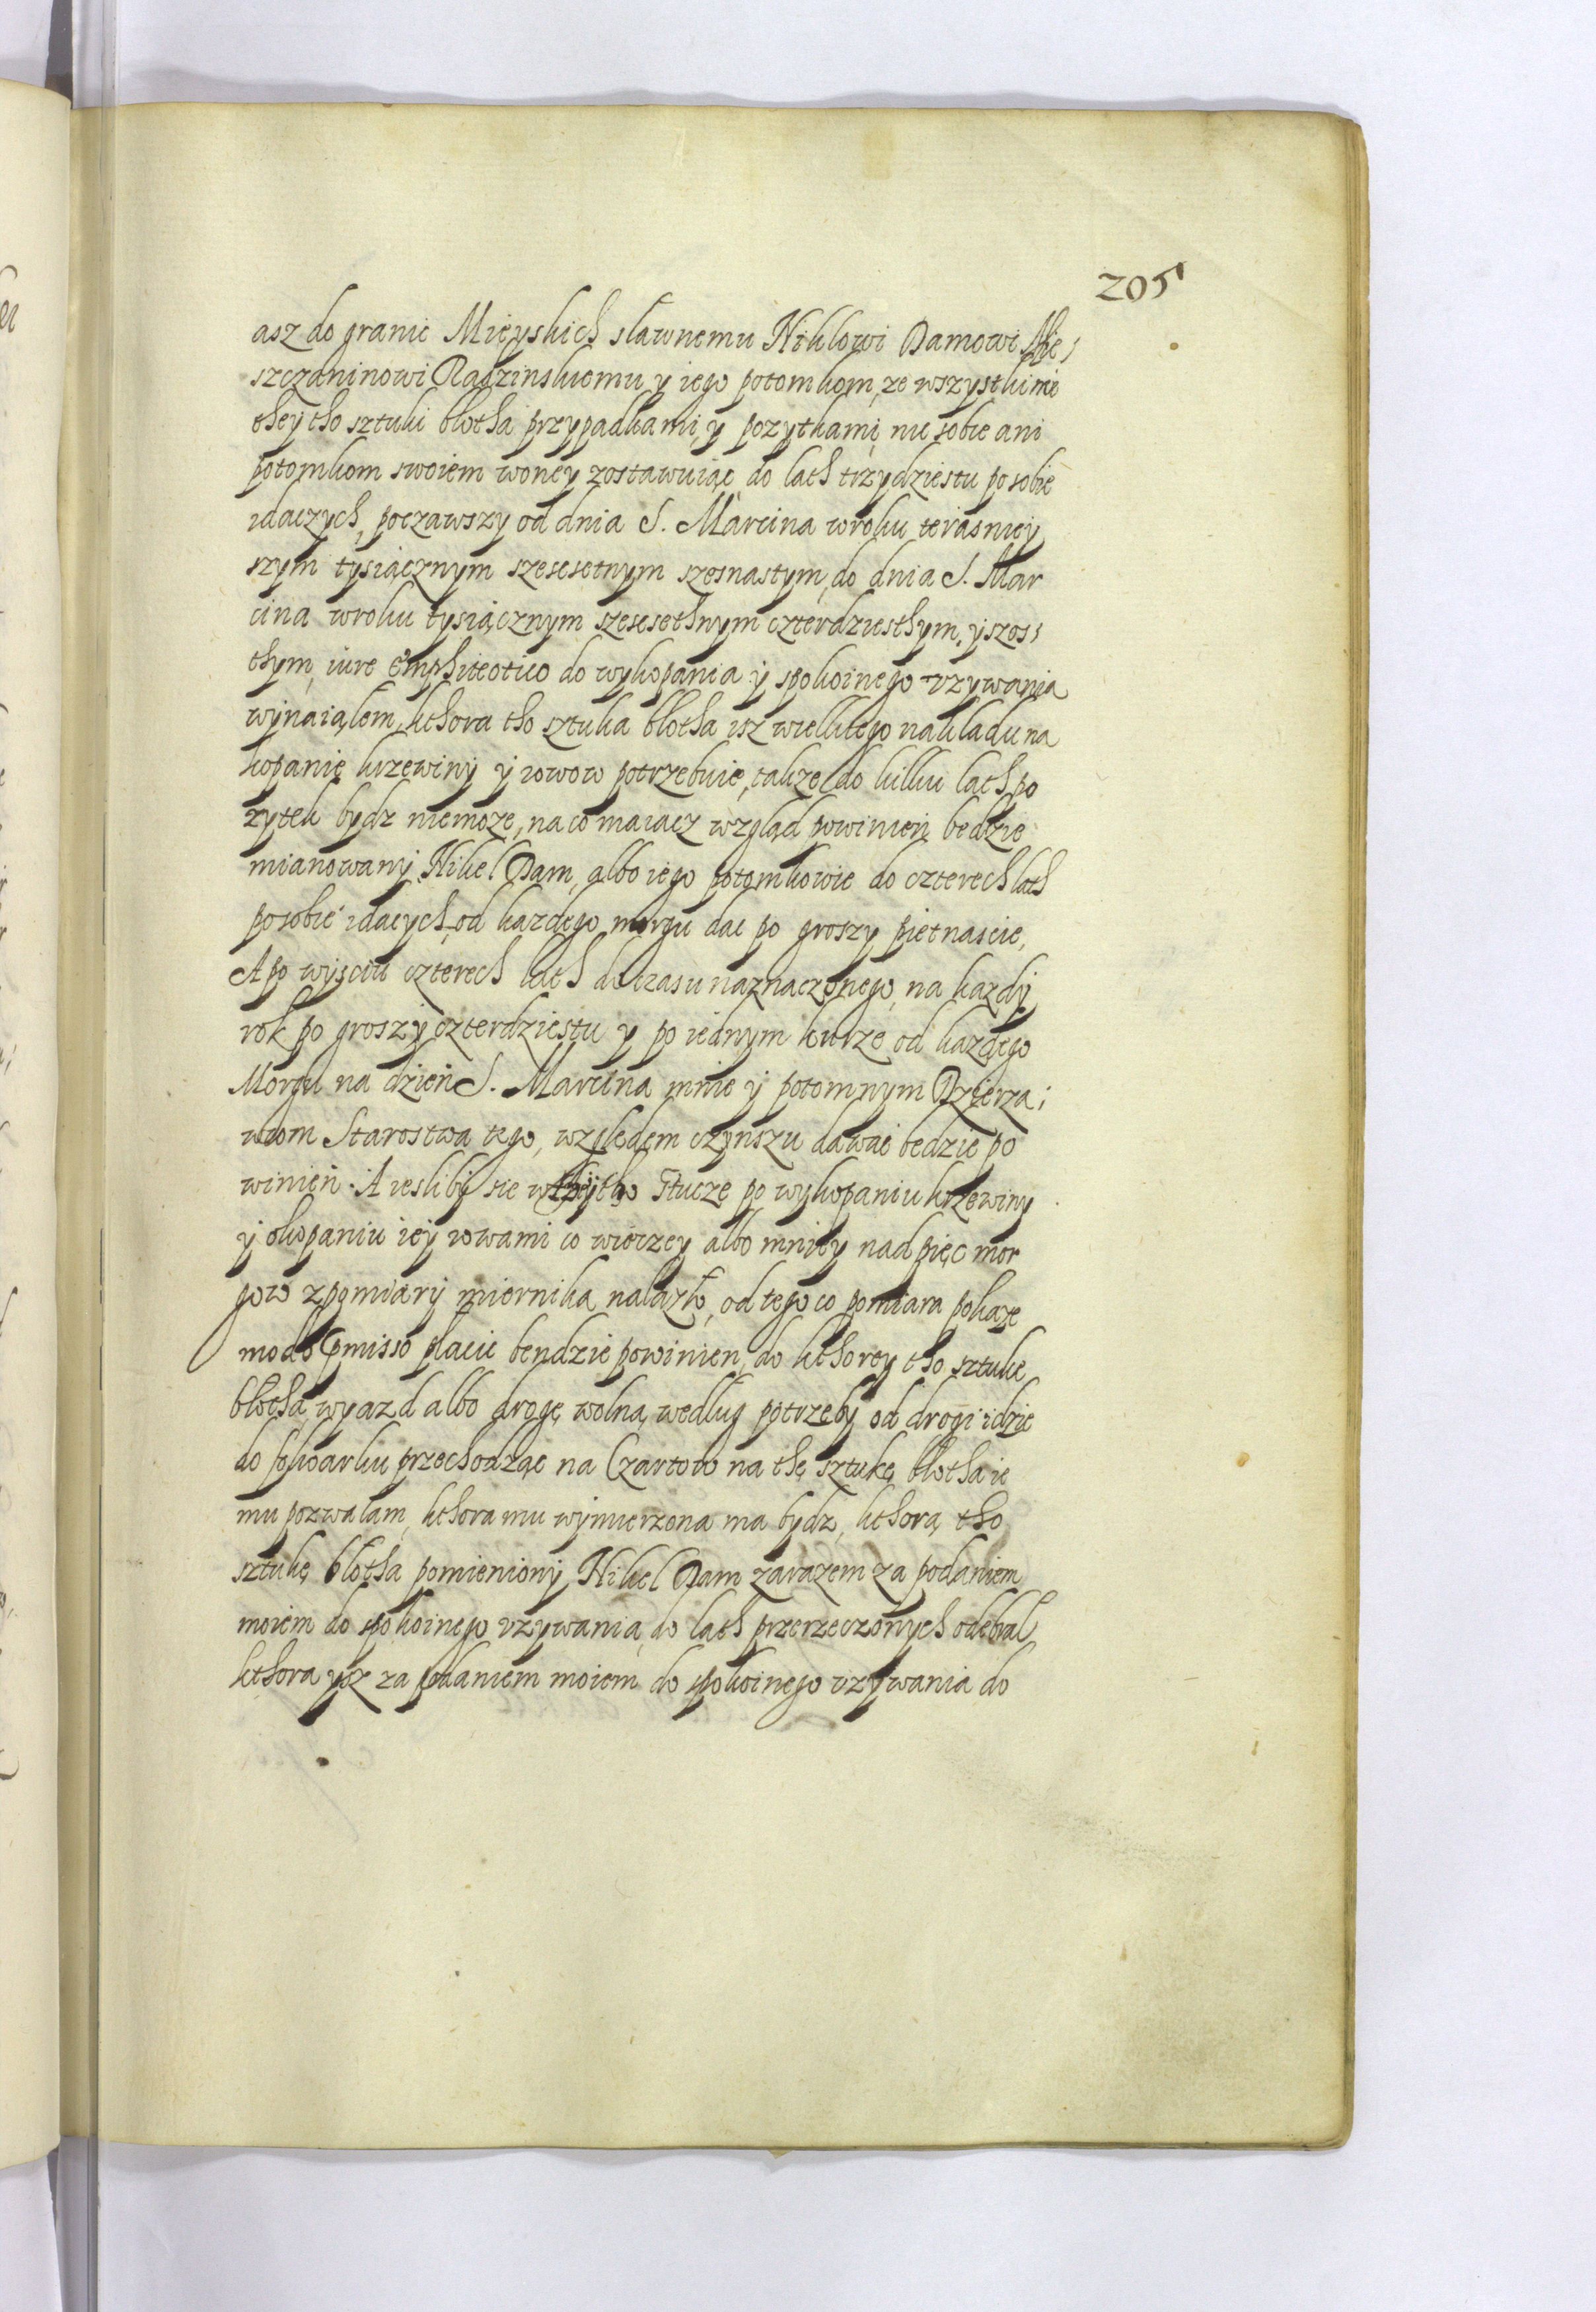 205
asz do granic Mieyskich sławnemu Niklowi Damowi Mie,
szczaninowi Radzinskiemu y iego potomkom, ze wszystkimi
theytho sztuki błotha przypadkami, y pozytkami, nic sobie ani
potomkom swoiem woney zostawuiąc do lath trzydziestu po sobie
idaczych, począwszy od dnia S. Marcina wroku terasniey
szym tysiącznym szescsetnym szesnastym, do dnia S. Mar
cina wroku tysiącznym szescsethnym czterdziesthym, y szos,
thym, iure Emphiteotico do wykopania y spokoinego vzywania
wynaiąłem, kthora tho sztuka błotha isz wielkiego nakładu na
kopanie krzewiny y rowow potrzebuie, takze do kilku lath po
zytek bydz niemoze, na co maiacz wzgląd powinien bedzie
mianowany Nikel Dam, albo iego potomkowie do czterech lath
posobie idacych, od kazdego morgu dac po groszy pietnascie,
A po wysciu czterech lath do czasu naznaczonego, na kazdy
rok po groszy czterdziestu y po iednym kurze od kazdego
Morgu na dzien S. Marcina mnie y potomnym Dzierza,
wcom Starostwa tego, względem czynszu dawac bedzie po
winien. A iesliby sie wtheytho sztucze po wykopaniu krzewiny
y okopaniu iey rowami co wieczey albo mniey nad pięc mor
gow zpomiary miernika nalazło, od tego co pomiara pokaze
modo pmisso płacic bendzie powinien, do kthorey tho sztuke
błotha wyazd albo drogę wolną według potrzeby od drogi idzie
do folwarku przechodząc na Czartow na thę sztukę błotha ie
mu pozwalam, kthora mu wymierzona ma bydz, kthorą tho
sztukę błotha pomieniony Nikel Dam zarazem za podaniem
moiem do spokoinego vzywania, do lath przerzeczonych odebrał
kthora ysz za podaniem moiem do spokoinego vzywania do